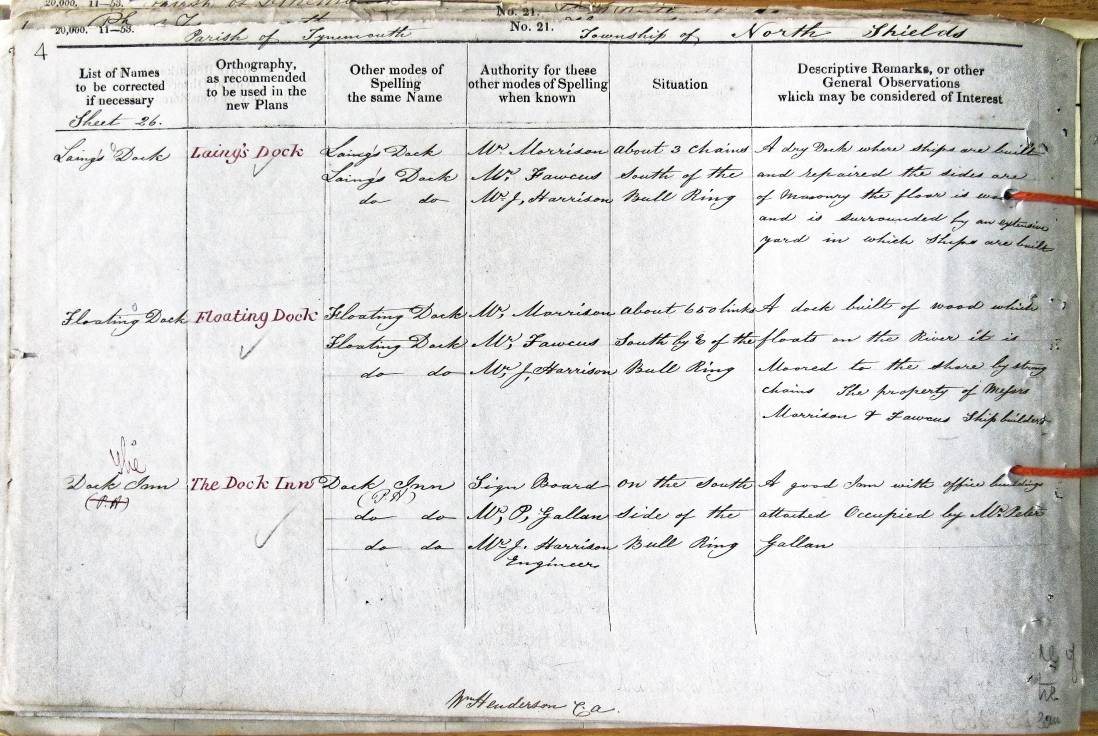 No. 21.
20,000. 11—53.
4
Parish of Tynemouth
No. 21.
Township of North Shields
List of Names to be corrected if necessary
Orthography, as recommended to be used in the new Plans
Other modes of Spelling the same Name
Authority for these other modes of Spelling when known
Situation
Descriptive Remarks, or other General Observations which may be considered of Interest
Sheet 26.
Laing's Dock Laing's Dock Laing's Dock Mr. Morrison About 3 Chains A dry Dock where ships are built
Laing's Dock Mr. Fawcus South of the and repaired the sides are
do do Mr. J, Harrison Bull Ring of Masonry the floor is
and is surrounded by an extensive
yard in which Ships are built
Floating Dock Floating Dock Floating Dock Mr. Morrison About 650 links A dock built of wood which
Floating Dock Mr. Fawcus South by E of the floats on the River it is
do do Mr. J, Harrison Bull Ring Moored to the shore by strong
chains The property of Messrs
Morrison & Fawcus Ship builders
The
Dock Inn The Dock Inn Dock Inn Sign Board On the South A good Inn with office buildings
(P.H) (P.H)
do do Mr. P, Gallan Side of the attached Occupied by Mr. Peter
do do Mr. J. Harrison Bull Ring Gallan
Engineer
Wm Henderson C.a.